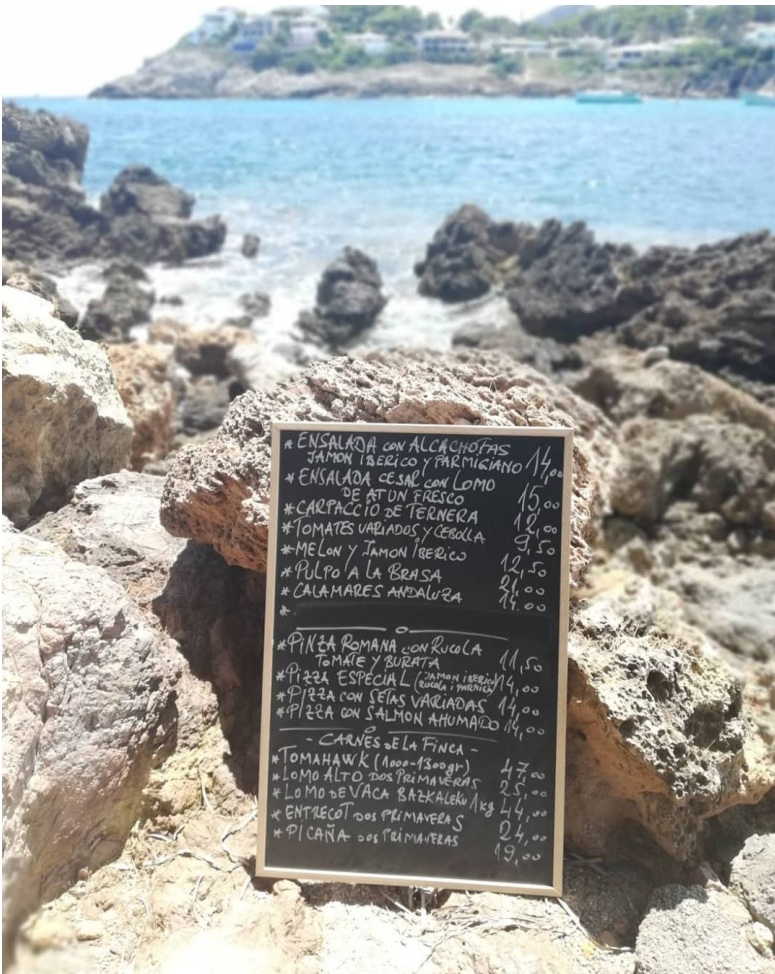 * ENSALADA CON ALCACHOFAS
JAMON IBERICO Y PARMIGIANO 14,00
* ENSALADA CESAR CON LOMO
DE ATUN FRESCO 15,00
* CARPACCIO DE TERNERA 12,00
* TOMATES VARIADOS Y CEBOLLA 9,50
* MELON Y JAMON IBERICO 12,50
* PULPO A LA BRASA 21,00
* CALAMARES ANDALUZA 14,00
*
* PINZA ROMANA CON RUCOLA
TOMATE Y BURATA 11,50
* PIZZA ESPECIAL (JAMON IBERICO 14,00
RUCOLA I
* PIZZA CON SETAS VARIADAS 14,00
* PIZZA CON SALMON AHUMADO 14,00
- CARNES DE LA FINCA -
* TOMAHAWK (1000-1300gr) 47,00
* LOMO ALTO DOS PRIMAVERAS 25,00
* LOMO DE VACA BAZKALEKU 1kg 44,00
* ENTRECOT DOS PRIMAVERAS 24,00
* PICAÑA DOS PRIMAVERAS 19,00